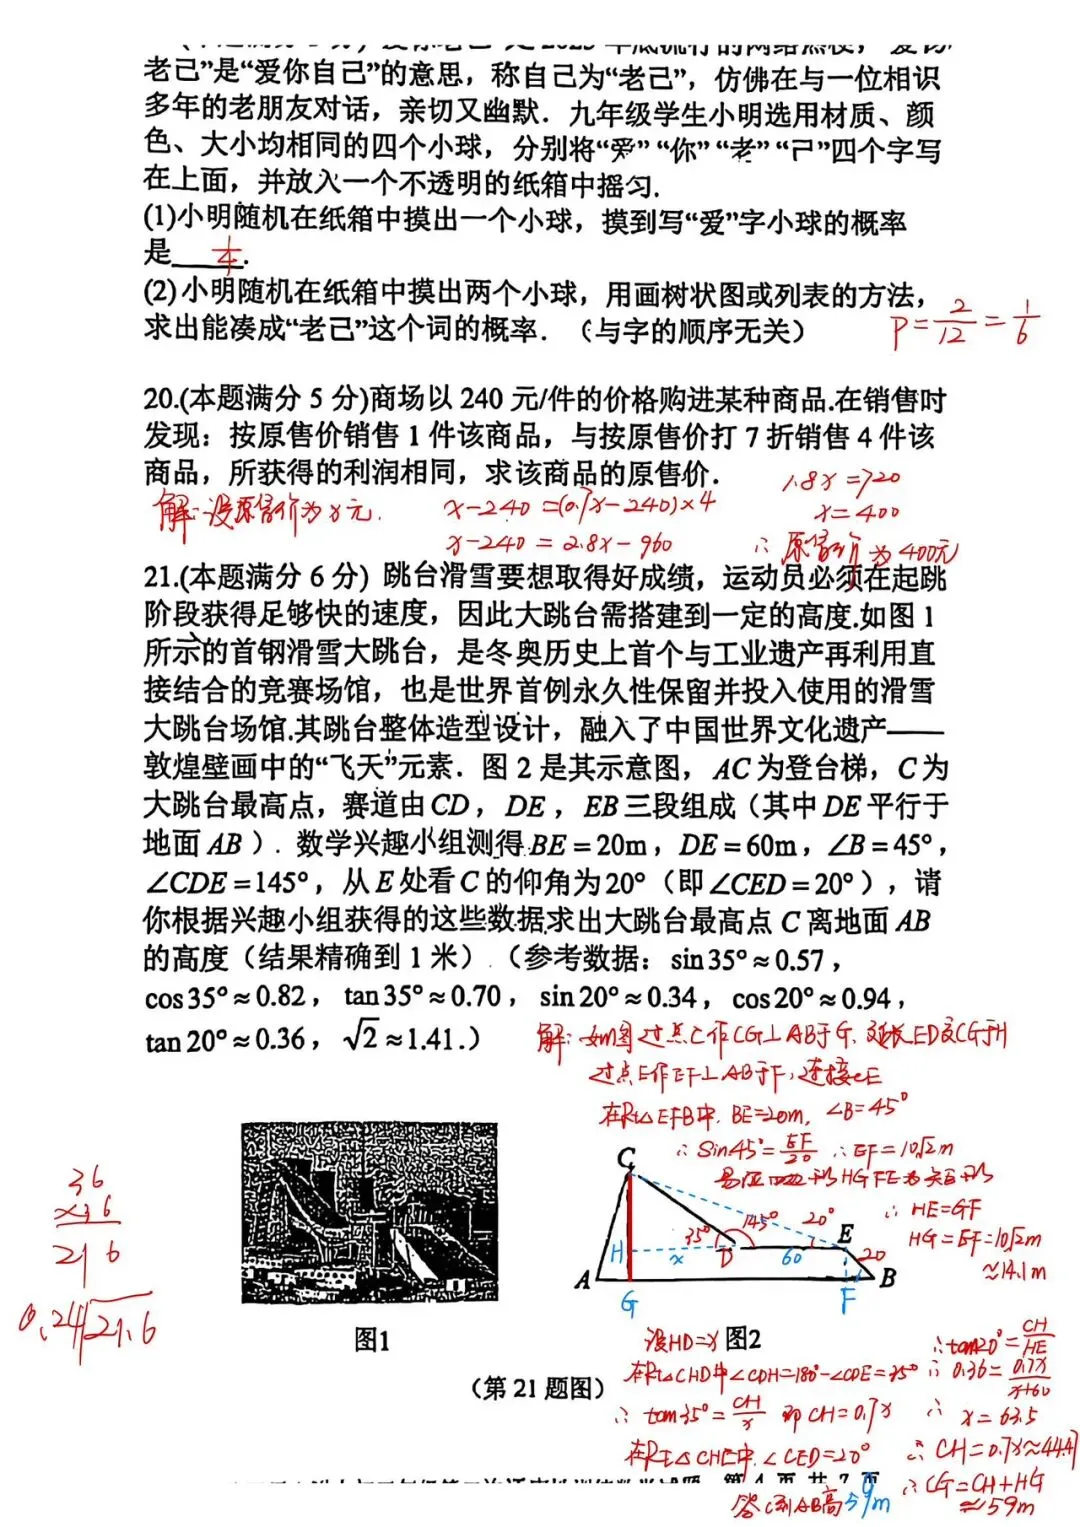 老己”是“爱你自己”的意思，称自己为“老己”，仿佛在与一位相识
多年的老朋友对话，亲切又幽默．九年级学生小明选用材质、颜
色、大小均相同的四个小球，分别将“爱”“你”“老”“己”四个字写
在上面，并放入一个不透明的纸箱中摇匀.
(1)小明随机在纸箱中摸出一个小球，摸到写“爱”字小球的概率
是 1/4 .
(2)小明随机在纸箱中摸出两个小球，用画树状图或列表的方法，
求出能凑成“老己”这个词的概率．（与字的顺序无关）
P=2/12=1/6
20.(本题满分 5 分)商场以 240 元/件的价格购进某种商品.在销售时
发现：按原售价销售 1 件该商品，与按原售价打 7 折销售 4 件该
商品，所获得的利润相同，求该商品的原售价．
解:设原售价为x元.
x-240=(0.7x-240)×4
x-240=2.8x-960
1.8x=720
x=400
∴原售价为400元
21.(本题满分 6 分) 跳台滑雪要想取得好成绩，运动员必须在起跳
阶段获得足够快的速度，因此大跳台需搭建到一定的高度.如图 1
所示的首钢滑雪大跳台，是冬奥历史上首个与工业遗产再利用直
接结合的竞赛场馆，也是世界首例永久性保留并投入使用的滑雪
大跳台场馆.其跳台整体造型设计，融入了中国世界文化遗产——
敦煌壁画中的“飞天”元素．图 2 是其示意图，AC 为登台梯，C 为
大跳台最高点，赛道由 CD，DE，EB 三段组成（其中 DE 平行于
地面 AB ）．数学兴趣小组测得 BE=20m，DE=60m，∠B=45°，
∠CDE=145°，从 E 处看 C 的仰角为 20°（即∠CED=20°），请
你根据兴趣小组获得的这些数据求出大跳台最高点 C 离地面 AB
的高度（结果精确到 1 米）．（参考数据：sin35°≈0.57，
cos35°≈0.82，tan35°≈0.70，sin20°≈0.34，cos20°≈0.94，
tan20°≈0.36，√2≈1.41.）
解:如图过点C作CG⊥AB于G.延长ED交CG于H
过点E作EF⊥AB于F,连接CE
在Rt△EFB中.BE=20m,∠B=45°
∴Sin45°=EF/20 ∴EF=10√2m
易证四边形HGFE为矩形
∴HE=GF
HG=EF=10√2m
≈14.1m
C
35° 145° 20° E
H x D 60 20
A B
G F
36
×.6
216
0.24 21.6
图1
图2
（第 21 题图）
设HD=x
在Rt△CHD中∠CDH=180°-∠CDE=35°
∴tan35°=CH/x 即CH=0.7x
在Rt△CHE中.∠CED=20°
∴tan20°=CH/HE
∴0.36=0.7x/x+60
∴x=63.5
∴CH=0.7x≈44.47
∴CG=CH+HG
≈59m
答C到AB高59m
第 4 页 共 7 页